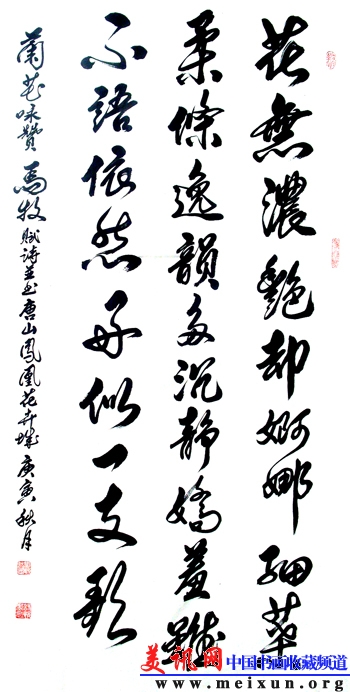 花無濃艷却婀娜細葉
柔條逸韻多沉靜嬌羞雖
不語依然好似一支歌
蘭花咏贊 馬牧賦詩並书唐山鳳凰花卉城 庚寅秋月
美讯网 中国书画收藏频道
www.meixun.org